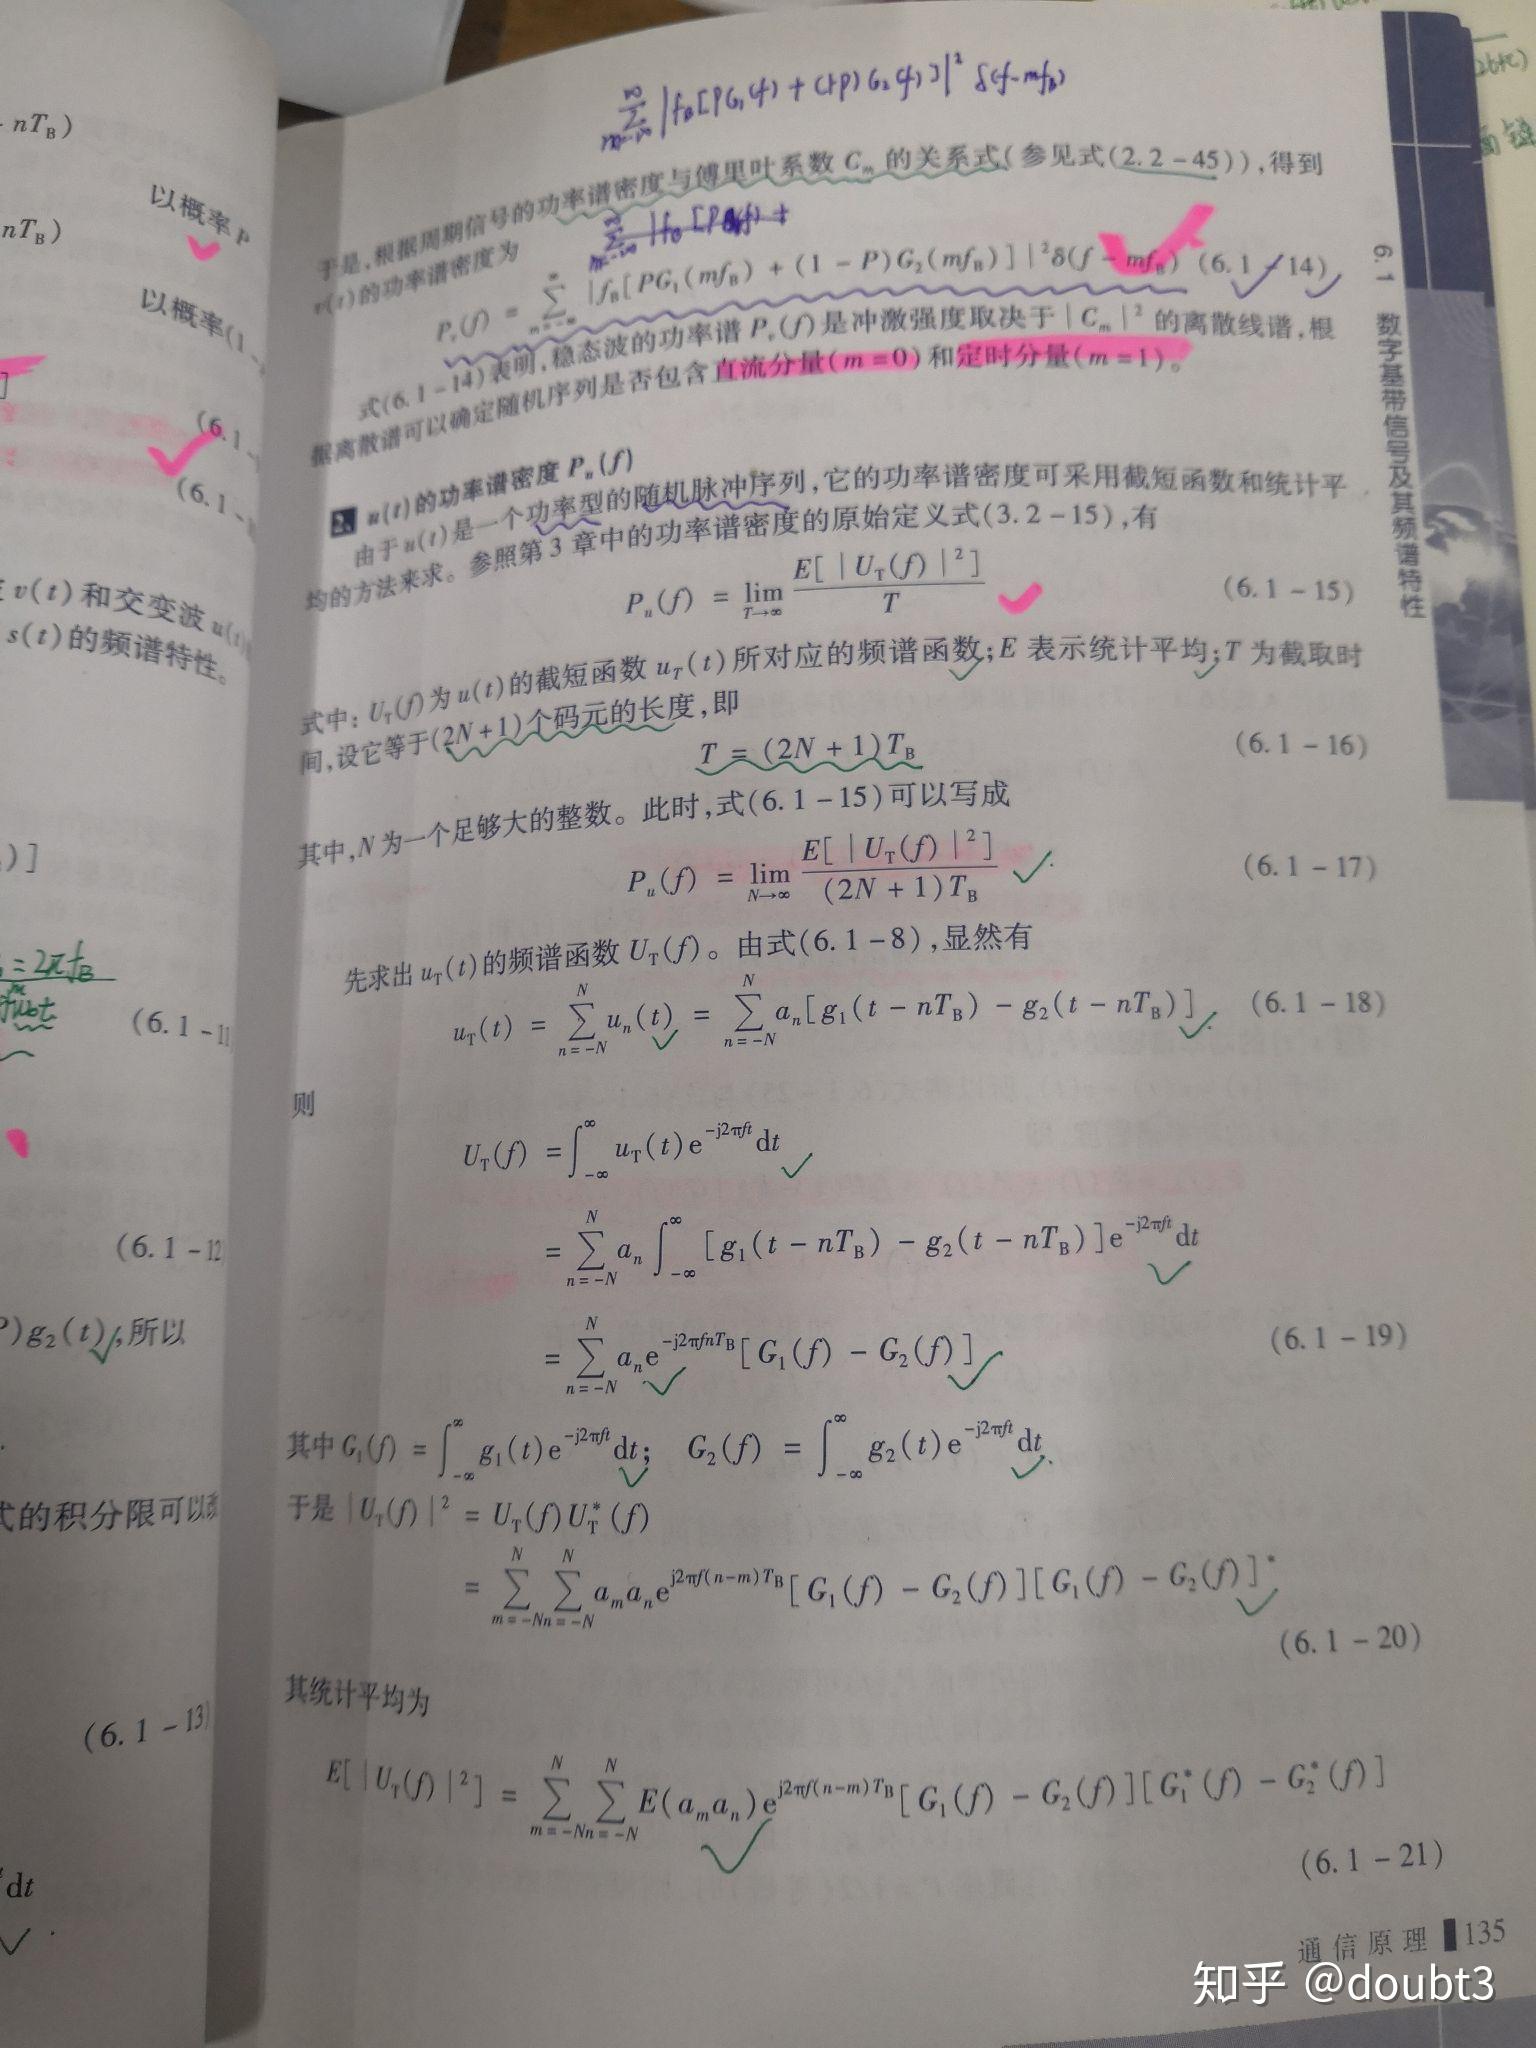 nT_B)
以概率P
nT_B)
以概率(1-
]
(6.1-
(6.1-
v(t)和交变波u(t)
s(t)的频谱特性。
)]
=2πf_B
(6.1-11
(6.1-12
)g₂(t),所以
式的积分限可以
(6.1-13)
dt
∑_{m=-∞}^{∞} |f_B[PG₁(f)+(1-P)G₂(f)]|² δ(f-mf_B)
于是,根据周期信号的功率谱密度与傅里叶系数 C_m 的关系式(参见式(2.2-45)),得到
∑_{m=-∞}^{∞} |f_B[P
v(t)的功率谱密度为
P_v(f) = ∑_{m=-∞}^{∞} |f_B[PG₁(mf_B) + (1-P)G₂(mf_B)]|²δ(f-mf_B) (6.1-14)
式(6.1-14)表明,稳态波的功率谱 P_v(f)是冲激强度取决于|C_m|²的离散线谱,根
据离散谱可以确定随机序列是否包含直流分量(m=0)和定时分量(m=1)。
2. u(t)的功率谱密度 P_u(f)
由于u(t)是一个功率型的随机脉冲序列,它的功率谱密度可采用截短函数和统计平
均的方法来求。参照第3章中的功率谱密度的原始定义式(3.2-15),有
P_u(f) = lim_{T→∞} E[|U_T(f)|²]/T (6.1-15)
式中:U_T(f)为u(t)的截短函数u_T(t)所对应的频谱函数;E 表示统计平均;T 为截取时
间,设它等于(2N+1)个码元的长度,即
T = (2N+1)T_B (6.1-16)
其中,N为一个足够大的整数。此时,式(6.1-15)可以写成
P_u(f) = lim_{N→∞} E[|U_T(f)|²]/((2N+1)T_B) (6.1-17)
先求出u_T(t)的频谱函数U_T(f)。由式(6.1-8),显然有
u_T(t) = ∑_{n=-N}^{N} u_n(t) = ∑_{n=-N}^{N} a_n[g₁(t-nT_B) - g₂(t-nT_B)] (6.1-18)
则
U_T(f) = ∫_{-∞}^{∞} u_T(t)e^{-j2πft}dt
= ∑_{n=-N}^{N} a_n ∫_{-∞}^{∞} [g₁(t-nT_B) - g₂(t-nT_B)]e^{-j2πft}dt
= ∑_{n=-N}^{N} a_n e^{-j2πfnT_B}[G₁(f) - G₂(f)] (6.1-19)
其中 G₁(f) = ∫_{-∞}^{∞} g₁(t)e^{-j2πft}dt; G₂(f) = ∫_{-∞}^{∞} g₂(t)e^{-j2πft}dt
于是|U_T(f)|² = U_T(f)U_T^*(f)
= ∑_{m=-N}^{N} ∑_{n=-N}^{N} a_m a_n e^{j2πf(n-m)T_B}[G₁(f) - G₂(f)][G₁(f) - G₂(f)]^*
(6.1-20)
其统计平均为
E[|U_T(f)|²] = ∑_{m=-N}^{N} ∑_{n=-N}^{N} E(a_m a_n)e^{j2πf(n-m)T_B}[G₁(f) - G₂(f)][G₁^*(f) - G₂^*(f)]
(6.1-21)
通信原理 135
6.1 数字基带信号及其频谱特性
知乎 @doubt3